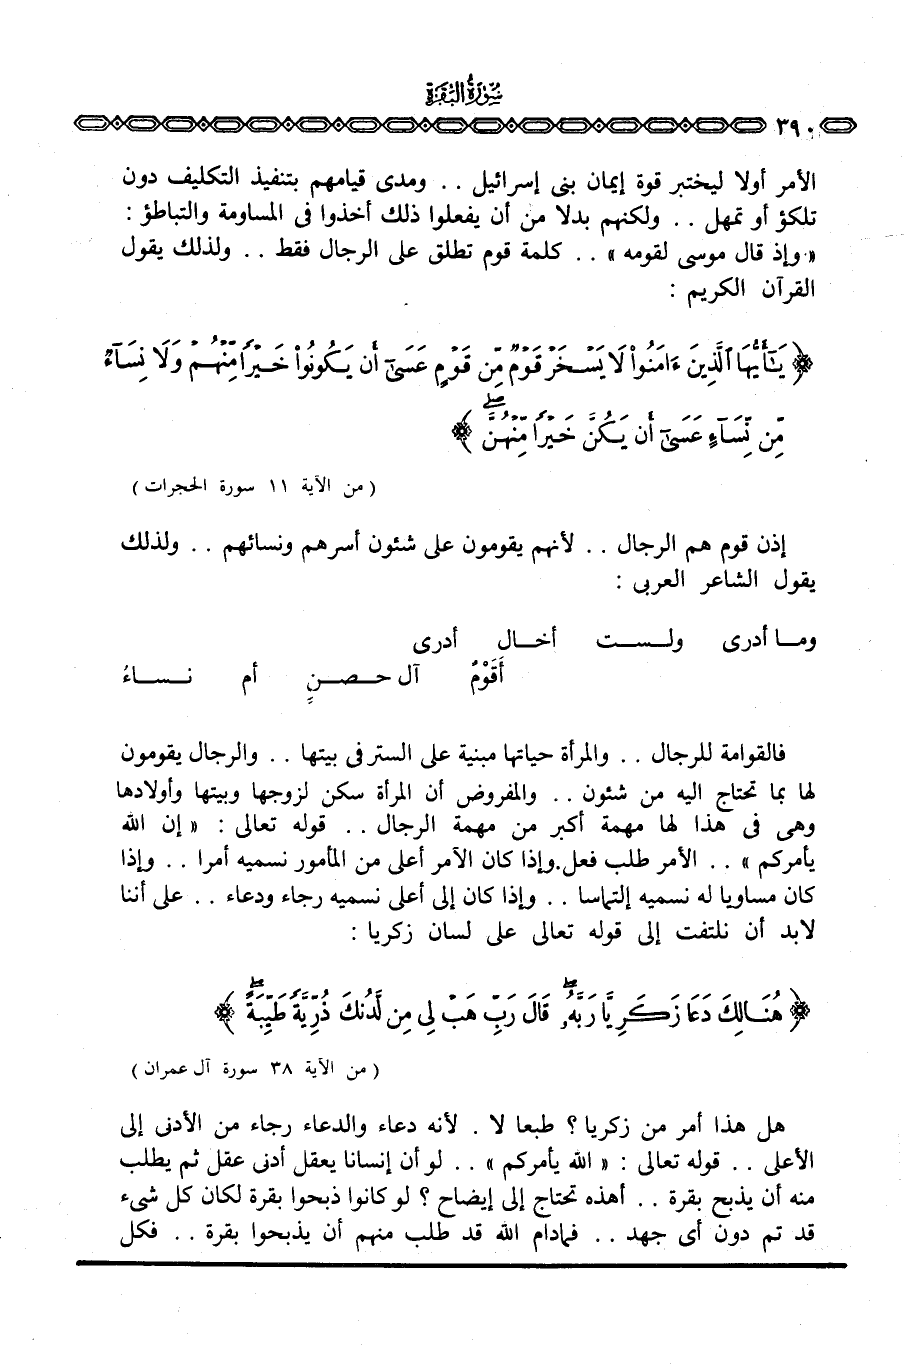 سورة البقرة
٣٩٠
الأمر أولا ليختبر قوة إيمان بنى إسرائيل .. ومدى قيامهم بتنفيذ التكليف دون
تلكؤ أو تمهل .. ولكنهم بدلا من أن يفعلوا ذلك أخذوا فى المساومة والتباطؤ :
« وإذ قال موسى لقومه » .. كلمة قوم تطلق على الرجال فقط .. ولذلك يقول
القرآن الكريم :
﴿ يَـٰٓأَيُّهَا ٱلَّذِينَ ءَامَنُوا۟ لَا يَسْخَرْ قَوْمٌ مِّن قَوْمٍ عَسَىٰٓ أَن يَكُونُوا۟ خَيْرًا مِّنْهُمْ وَلَا نِسَآءٌ
مِّن نِّسَآءٍ عَسَىٰٓ أَن يَكُنَّ خَيْرًا مِّنْهُنَّ ۖ ﴾
( من الآية ١١ سورة الحجرات )
إذن قوم هم الرجال .. لأنهم يقومون على شئون أسرهم ونسائهم .. ولذلك
يقول الشاعر العربى :
ومـا أدرى ولـسـت أخـال أدرى
أَقَوْمٌ آل حـصـنٍ أم نـسـاءُ
فالقوامة للرجال .. والمرأة حياتها مبنية على الستر فى بيتها .. والرجال يقومون
لها بما تحتاج اليه من شئون .. والمفروض أن المرأة سكن لزوجها وبيتها وأولادها
وهى فى هذا لها مهمة أكبر من مهمة الرجال .. قوله تعالى : « إن الله
يأمركم » .. الأمر طلب فعل. وإذا كان الآمر أعلى من المأمور نسميه أمرا .. وإذا
كان مساويا له نسميه إلتماسا .. وإذا كان إلى أعلى نسميه رجاء ودعاء .. على أننا
لابد أن نلتفت إلى قوله تعالى على لسان زكريا :
﴿ هُنَالِكَ دَعَا زَكَرِيَّا رَبَّهُۥ ۖ قَالَ رَبِّ هَبْ لِى مِن لَّدُنكَ ذُرِّيَّةً طَيِّبَةً ۖ ﴾
( من الآية ٣٨ سورة آل عمران )
هل هذا أمر من زكريا ؟ طبعا لا . لأنه دعاء والدعاء رجاء من الأدنى إلى
الأعلى .. قوله تعالى : « الله يأمركم » .. لو أن إنسانا يعقل أدنى عقل ثم يطلب
منه أن يذبح بقرة .. أهذه تحتاج إلى إيضاح ؟ لو كانوا ذبحوا بقرة لكان كل شىء
قد تم دون أى جهد .. فمادام الله قد طلب منهم أن يذبحوا بقرة .. فكل